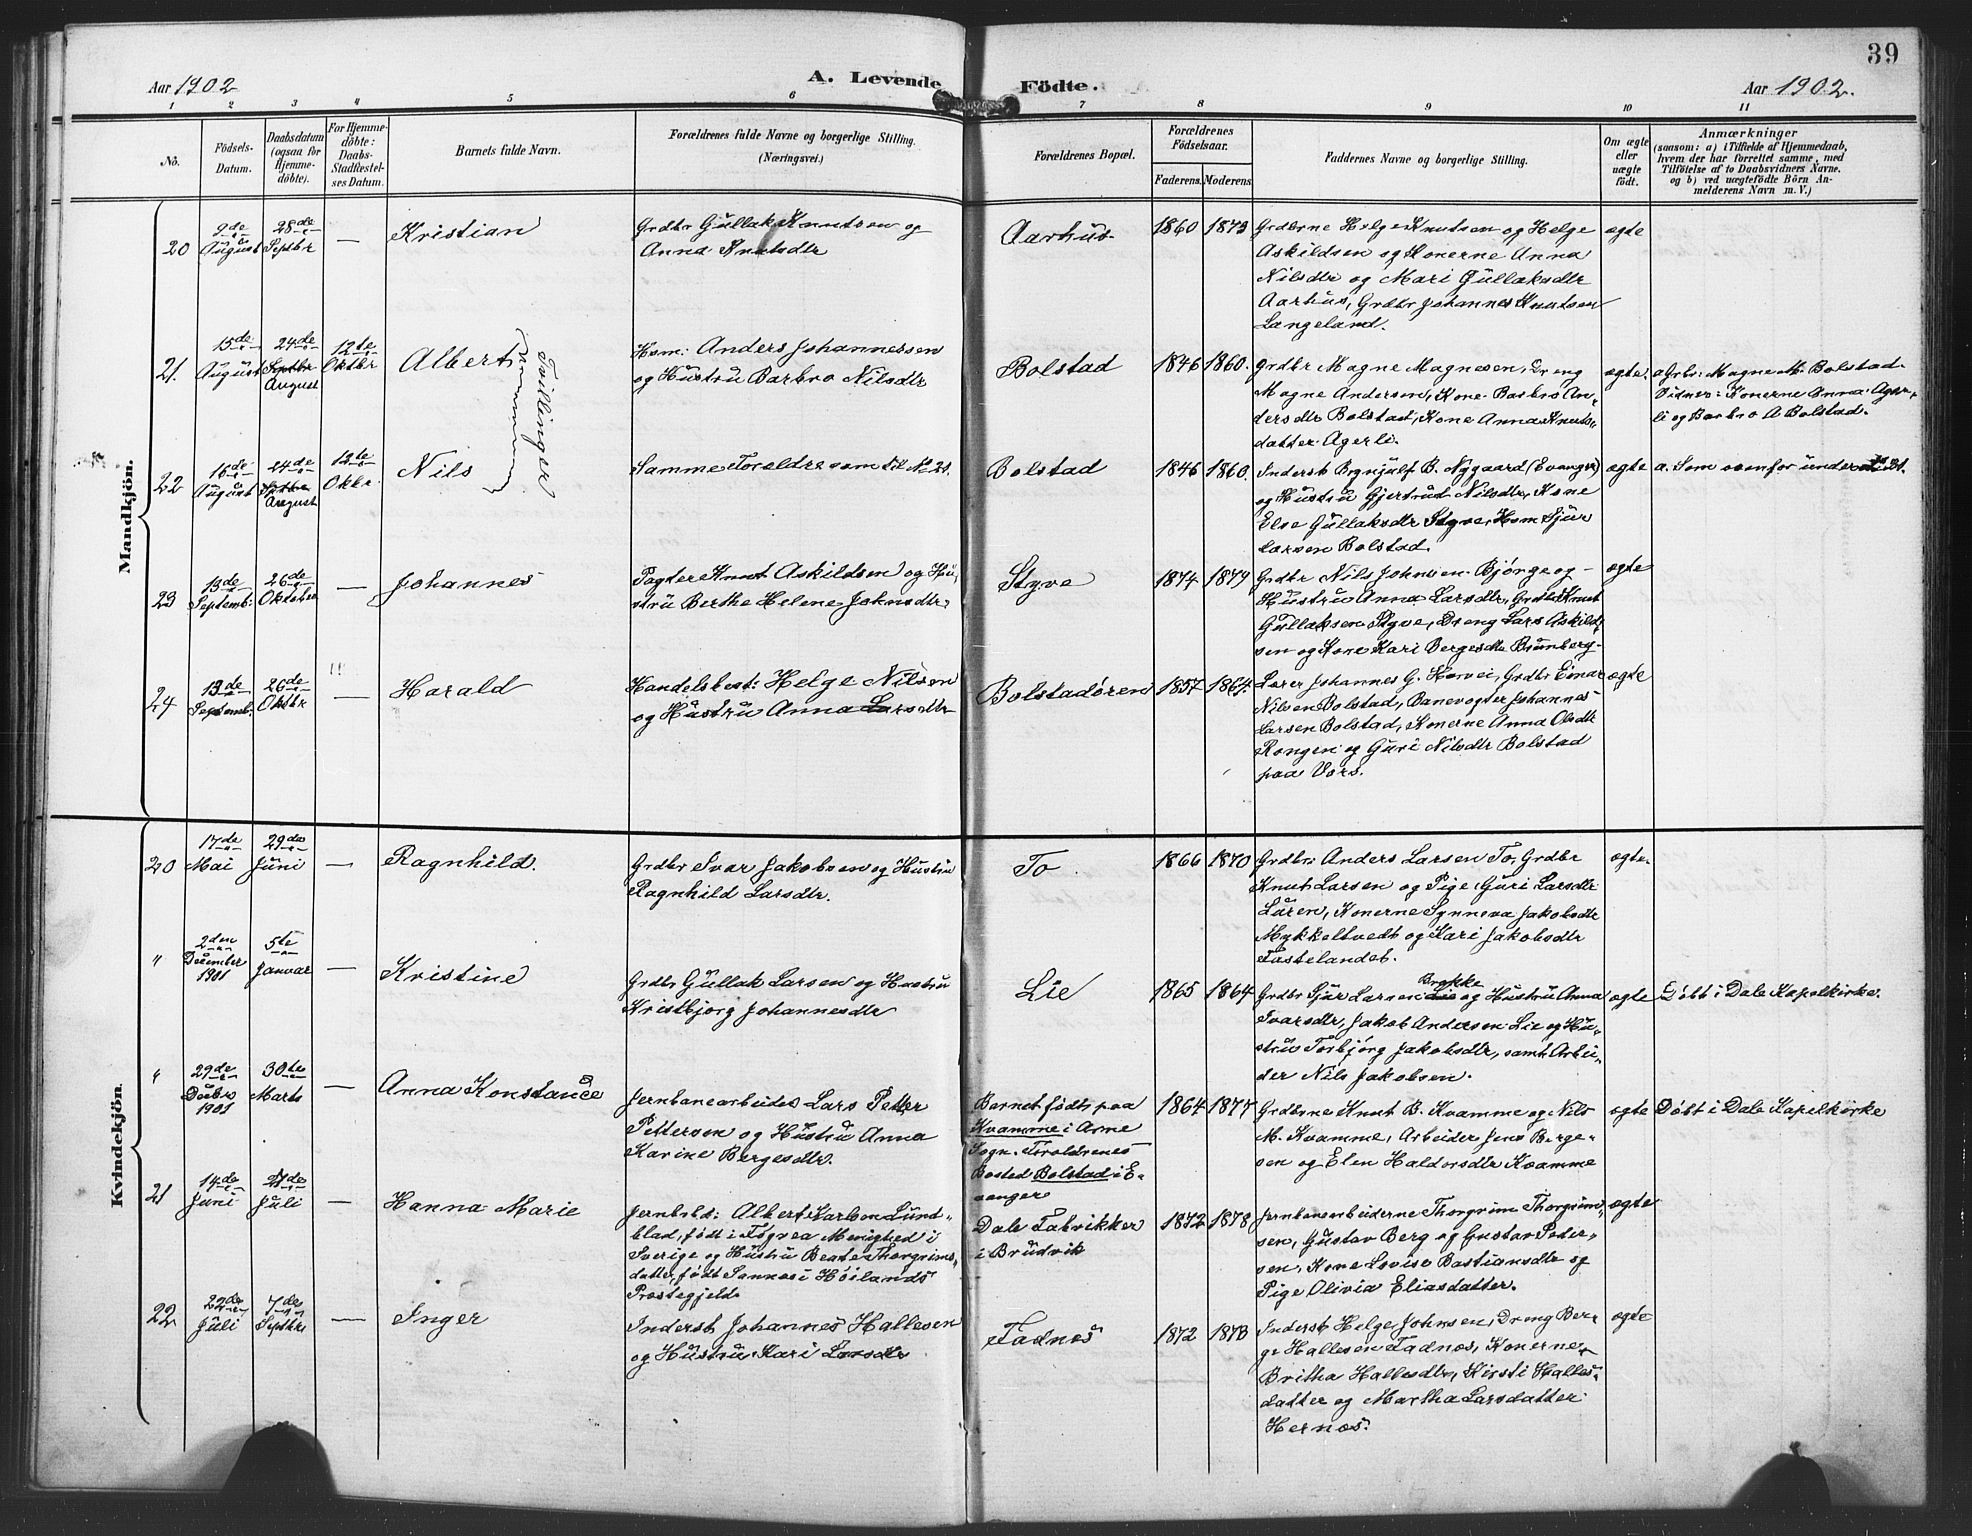 39
Aar 1902
A. Levende
Födte.
Aar 1902.
1 2 3 4 5 6 7 8 9 10 11
No.
Födsels-
Datum.
Daabsdatum
(ogsaa for
Hjemme-
döbte).
For Hjemme-
döbte:
Daabs-
Stadfæstel-
ses Datum.
Barnets fulde Navn.
Forældrenes fulde Navne og borgerlige Stilling.
(Næringsvei.)
Forældrenes Bopæl.
Forældrenes
Födselsaar.
Faderens. Moderens.
Faddernes Navne og borgerlige Stilling.
Om ægte
eller
uægte
födt.
Anmærkninger
(saasom: a) i Tilfælde af Hjemmedaab,
hvem der har forrettet samme, med
Tilföielse af to Daabsvidners Navne.
og b) ved uægtefödte Börn An-
melderens Navn m. V.)
Mandkjön.
20
9de
August
28de
Septbr
—
Kristian
Grdbr Gullak Knutsen og
Anna Knutsdtr
Aarhus
1860 1873
Grdbrne Helge Knutsen og Helge
Askildsen og Konerne Anna
Nilsdtr og Mari Gullaksdtr
Aarhus, Grdbr Johannes Knutsen
Langeland.
ægte
21.
15de
August
24de
Septbr
August
12te
Oktbr
Albert
Tvillinger
Hsm: Anders Johannessen
og Hustru Barbro Nilsdtr
Bolstad
1846 1860.
Grdbr Magne Magnesen, Dreng
Magne Andersen, Kone Barbro An-
dersdtr Bolstad, Kone Anna Knuts-
datter Agerli.
ægte.
a Grbr. Magne M. Bolstad.
Vidner: Konerne Anna Ager-
li og Barbro A Bolstad.
22
16de
August
24de
Septbr
August
12te
Oktbr.
Nils
Samme Foreldre som til No 21.
Bolstad
1846 1860.
Inderst Brynjulf B. Nygaard (Evanger)
og Hustru Gjertrud Nilsdtr, Kone
Else Gullaksdtr Styve, Hsm Sjur
Larsen Bolstad.
ægte
a. Som ovenfor under No 21.
23
13de
Septemb:
26de
Oktober
—
Johannes
Pagter Knut Askildsen og Hu-
stru Berthe Helene Johnsdtr.
Styve
1874 1879
Grdbr Nils Johnsen Bjørge og
Hustru Anna Larsdtr, Grdbr Knut
Gullaksen Styve, Dreng Lars Askild-
sen og Kone Kari Bergesdtr Brunberg
ægte
24
13de
Septemb:
26de
Oktbr
—
Harald
Handelsbest: Helge Nilsen
og Hustru Anna Larsdtr
Bolstadøren
1857 1864.
Lærer Johannes G. Horvei, Grdbr Einar
Nilsen Bolstad, Banevogter Johannes
Larsen Bolstad, Konerne Anna Olsdtr
Rongen og Guri Nilsdtr Bolstad
paa Vors.
ægte
Kvindekjön.
20
17de
Mai
29de
Juni
—
Ragnhild.
Grdbr Ivar Jakobsen og Hustru
Ragnhild Larsdtr.
To
1866 1870
Grdbr: Anders Larsen To, Grdbr
Knut Larsen og Pige Guri Larsdtr
Luren, Konerne Synneva Jakobsdtr
Mykkeltvedt og Kari Jakobsdtr
Fostelandet.
ægte
"
2den
December
1901
5te
Januar
—
Kristine
Grdbr Gullak Larsen og Hustru
Kristbjørg Johannesdtr
Lie
1865 1864
Brekke
Grdbr Sjur Larsen Lie og Hustru Anna
Ivarsdtr, Jakob Andersen Lie og Hu-
stru Torbjørg Jakobsdtr, samt Arbei-
der Nils Jakobsen.
ægte
Døbt i Dale Kapelkirke.
"
29de
Decbr
1901
30te
Marts
—
Anna Konstance
Jernbanearbeider Lars Petter
Pettersen og Hustru Anna
Karine Bergesdtr.
Barnet født paa
Kvamme i Arne
Sogn. Foreldrenes
Bosted Bolstad i E-
vanger
1864 1877
Grdbrne Knut B. Kvamme og Nils
M. Kvamme, Arbeider Jens Berge-
sen og Elen Haldorsdtr Kvamme
ægte
Døbt i Dale Kapelkirke
21
14de
Juni
Juli
—
Hanna Marie
Jernb.arb: Albert Karlsen Lund-
blad, født i Fogrea Menighed i
Sverige og Hustru Beate Thorgrims-
datter, født Sannes i Høilands
Præstegjeld.
Dale Fabrikker
i Brudvik
1872 1878
Jernbanearbeiderne Thorgrim Thorgrim-
sen, Gustav Berg og Gustav Peder-
sen, Kone Lovise Bastiansdtr og
Pige Olivia Eliasdatter.
ægte
22
22de
Juli
7de
Septbr
—
Inger
Inderst Johannes Hallesen
og Hustru Kari Larsdtr
Fadnes
1872 1873
Inderst Helge Johnsen, Dreng Ber-
ge Hallesen Fadnes, Konerne
Britha Hallesdtr, Kirsti Halles-
datter og Martha Larsdatter
Hernes.
ægte